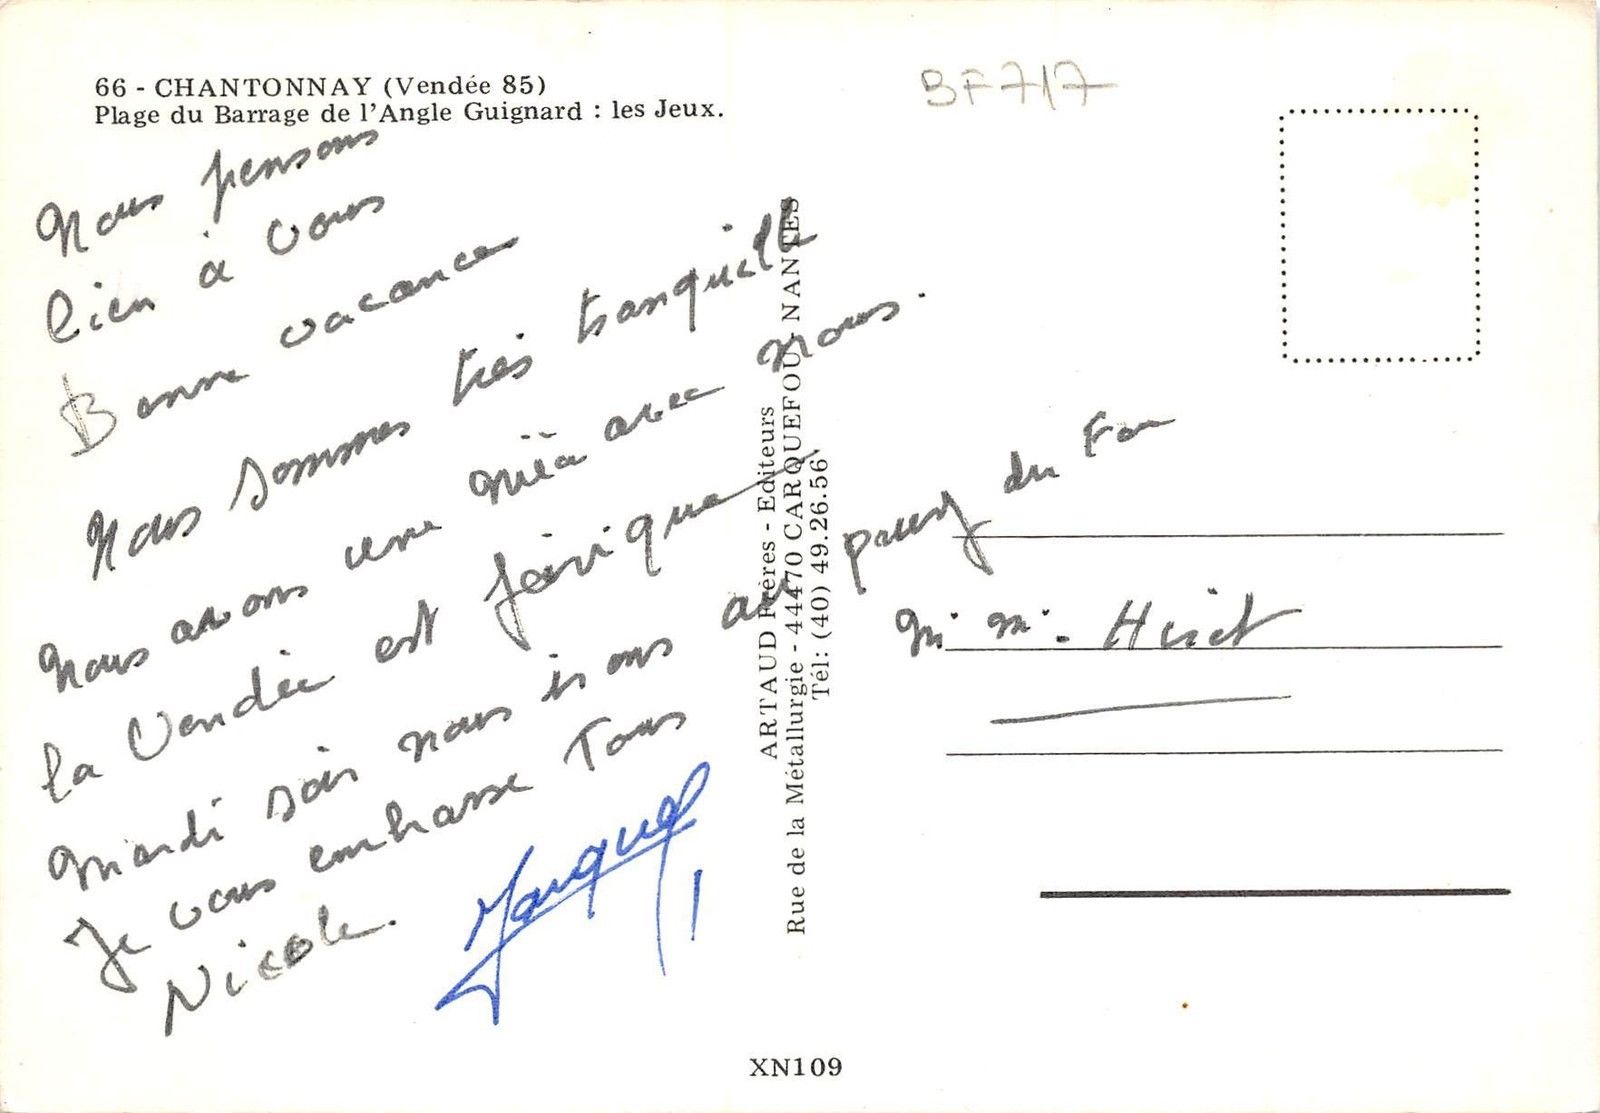 66 - CHANTONNAY (Vendée 85)
Plage du Barrage de l'Angle Guignard : les Jeux.
BF 717
Nous pensons
bien à vous
Bonne vacances
Nous sommes très tranquille
Nous avons une avec nous.
la Vendée est féérique
Mardi soir nous irons au du Fou
Je vous embrasse Tous
Nicole.
ARTAUD Frères - Editeurs
Rue de la Métallurgie - 44470 CARQUEFOU - NANTES
Tél: (40) 49.26.56
XN109